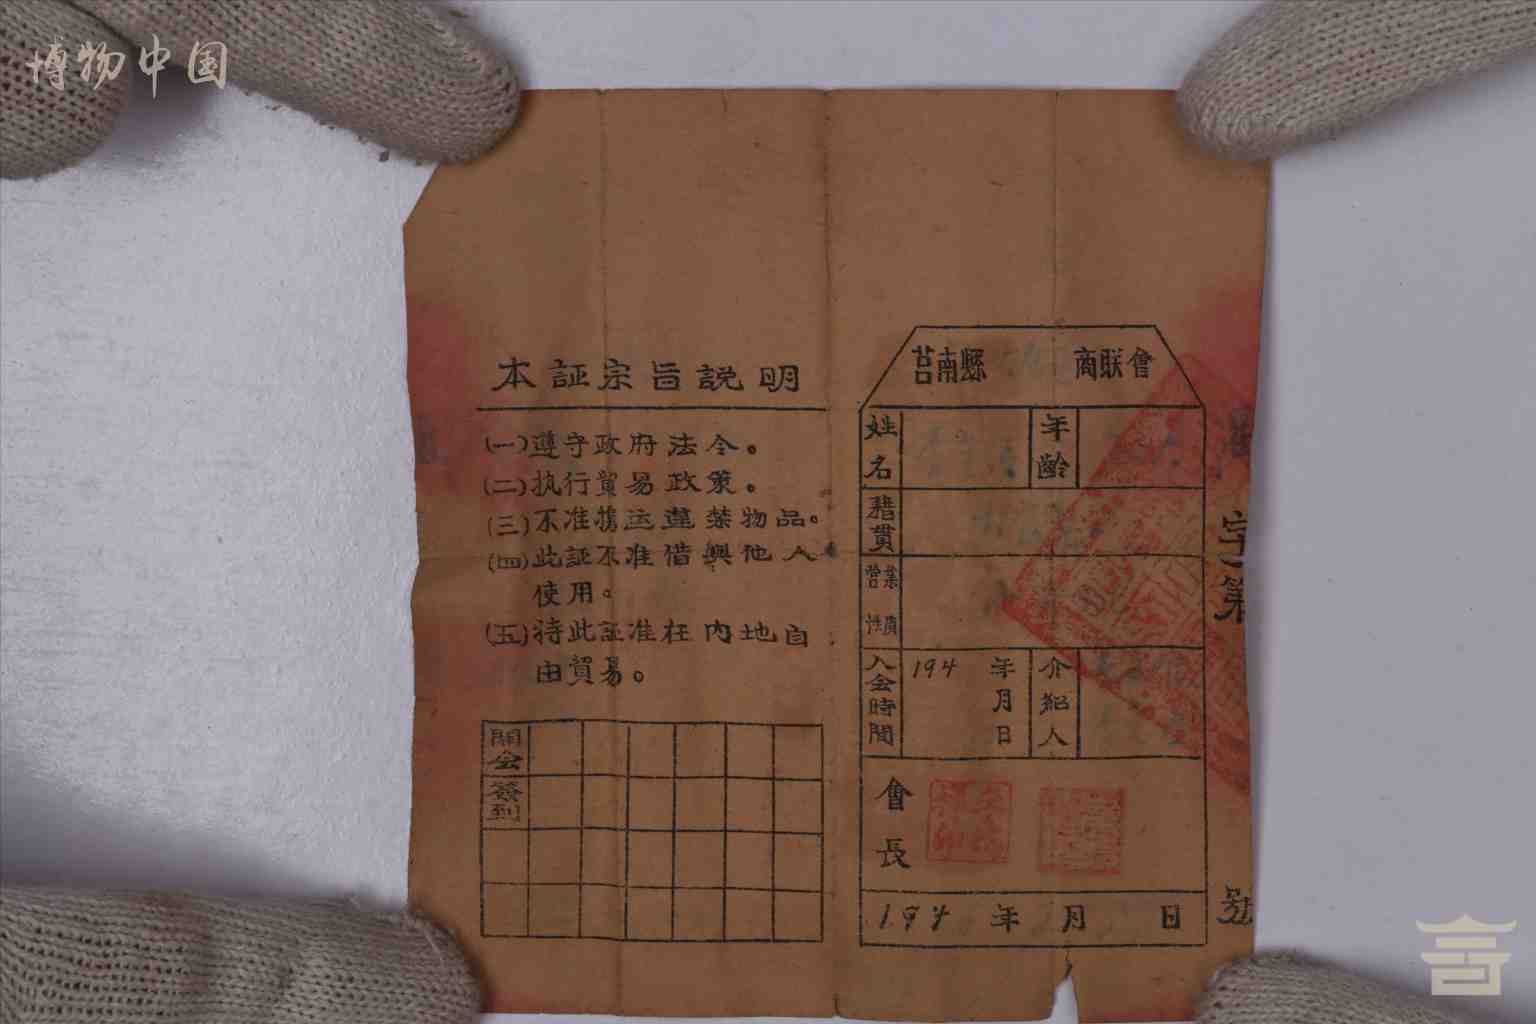 博物中国
莒南縣 商联會
姓名
年齡
籍貫
營業性質
入会時間
194 年 月 日
介紹人
會長
194 年 月 日
字第
號
本証宗旨說明
(一)遵守政府法令。
(二)执行貿易政策。
(三)不准携运違禁物品。
(四)此証不准借與他人
使用。
(五)持此証准在內地自
由貿易。
開会簽到